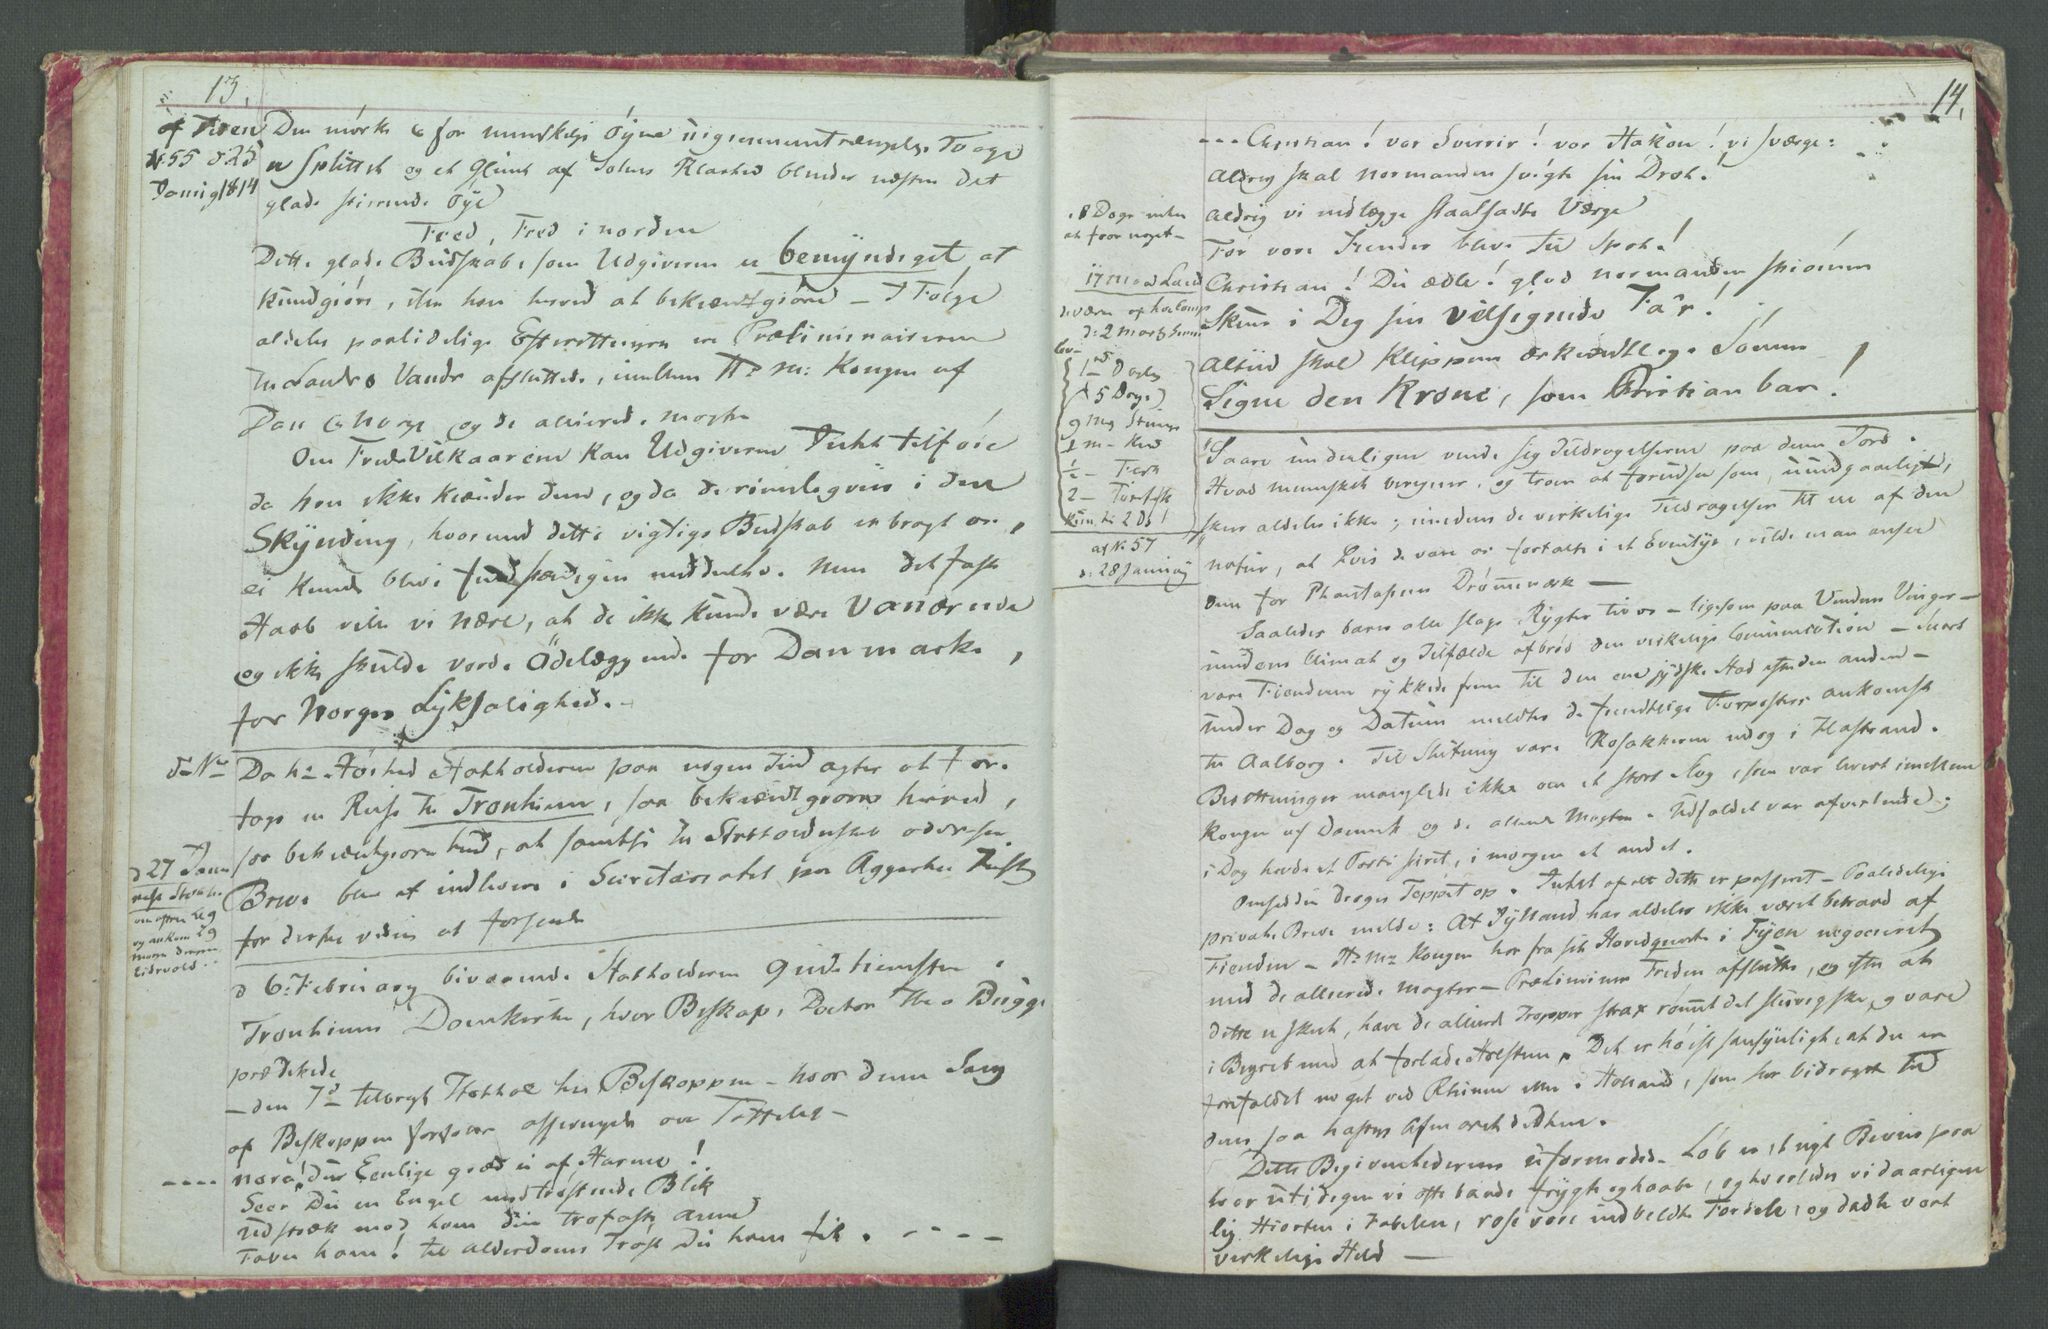 13.
af Tiden
N: 55 d 25
Januig 1814
Den mørke & for menneskelige Øyne uigiennemtrængelige Taage
er splittet og et Glimt af Solens Klarhed blender næsten det
glade stirrende Øye
Fred, Fred i norden
Dette glade Budskab, som Udgiveren er bemyndiget at
kundgiøre, iler han herved at bekiendtgiøre – I Følge
aldeles paalidelige Efterretninger ere Præliminairerne
til Landes Vande afsluttede, imellem H: M: Kongen af
Dan & Norge og de allierede Magter
Om Freds Vilkaarene kan Udgiveren Intet tilføie
da han ikke kiender dem, og da de rimeligviis i den
Skynding, hvormed dette vigtige Budskab er bragt os,
ei kunde blive fuldstændigen meddeelte. Men det faste
Haab ville vi nære, at de ikke kunde være Vanærende
og ikke skulde vorde Ødelæggende for Danmark,
for Norges Lyksalighed. –
d: N:
Da h: Høihed Statholderen paa nogen Tiid agter at fore-
tage en Reise til Tronhiem, saa bekiendtgiøres herved,
at samtlige til Statholderskabet adresserede
Breve blive at indlevere i Secretariatet paa Aggerhuus
for derfra videre at forsendes
d 27 Janu
reiste Statho
om aften kl 9
og ankom kl 9
Morgen derpaa
Eidsvold
d 6: Februarj bivaanede Statholderen Gudstienesten i
Tronhiems Domkirke, hvor Biskop, Doctor Theo Bugge
prædikede
– den 7d tilbragt Stathol: hos Biskoppen – hvor denne Sang
af Biskoppen forfattet afsunget ved Taffelet –
---- Nora! Du Eenlige græd ei af Harme!
Seer Du en Engel med trøstende Blik
Udstræk mod ham din trofaste Arme
Favn ham! til Alderdoms Trøst Du ham fik. - - - -
14.
--- Christian! vor Sverrir! vor Hakon! vi sværge:
Aldrig skal Normanden svigte sin Drot!
Aldrig vi nedlægge staalsatte Værge
Før vore Fiender blive til Spot!
Christian! Du ædle! glad Normanden skiønner
Skuer i Dig sin velsignede Far!
Altiid skal Klippens erkiendtlige Sønner
Signe den Krone, som Christian bar!
8 Dage uden
at faae noget –
1 – Dagen
(5 Dage)
2 –
af N: 57
d: 28 Januarj
Saare underligen vende sig Tildragelserne paa denne Jord.
Hvad mennesket beregner, og troer at forudsee som uundgaaeligt,
skeer aldeles ikke; imedens de virkelige Tildragelser tit ere af den
natur, at hvis de vare os fortalte i et Eventyr, vilde man ansee
dem for Phantasiens Drømmeværk –
Saaledes bares alle slags Rygter til os – ligesom paa Vindens Vinger –
imedens Climat og Tilfælde afbrød den virkelige Communication – Snart
vare Fienderne rykkede frem til den ene jydske Stad efter den anden –
under Dag og Datum meldtes de fiendtlige Forposters ankomst
til Aalborg. Til Slutning vare Kosakkerne endog i Fladstrand.
Beretninger manglede ikke om et stort Slag, som var leveret imellem
Kongen af Danmk og de allierede Magter. Udfaldet var afvexlende;
i Dag havde et Parti seiret, i morgen et andet.
Omsider drages Teppet op. Intet af alt dette er passeret – Paalidelige
private Breve melde: At Jylland har aldeles ikke været betraadt af
Fienden – H: M: Kongen har fra sit Hovedqvarteer i Fyen negocieret
med de allierede Magter – Præliminair Freden afsluttet, og efter at
dette er skeet, have de allierede Tropper strax rømmet det slesvigske, og vare
i Begreb med at forlade Holsteen. Det er høist sandsynligt, at der er
forefaldet noget ved Rhinen eller i Holland, som har bidraget til
deres saa hastige Afmarsch dedhen.
Dette Begivenhedernes uformodede Løb er et nyt Beviis paa
hvor utidigen vi ofte baade frygte og haabe, og hvorledes vi daarligen
lig Hiorten i Fabelen, rose vore indbildte Fordele, og dadle vort
virkelige Held –